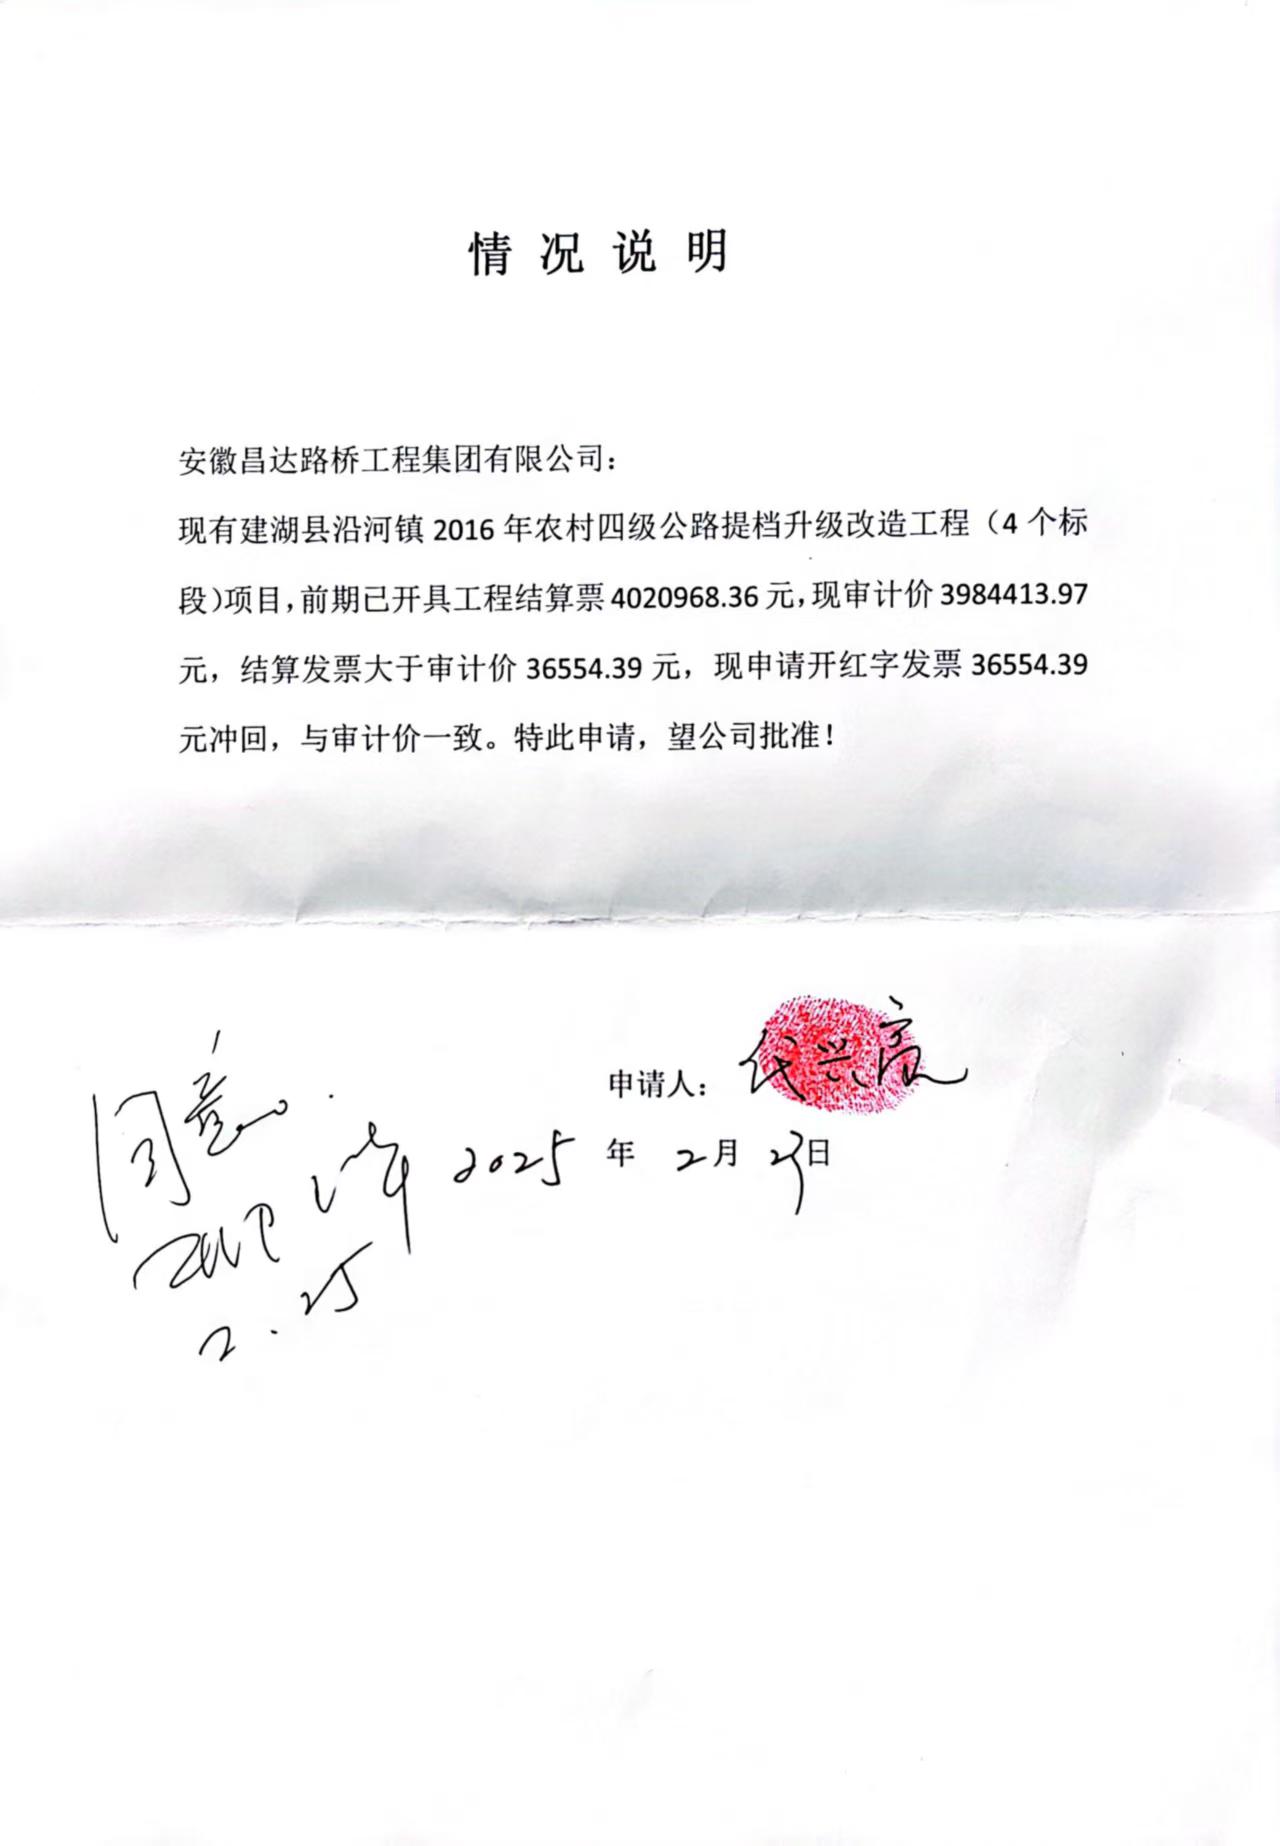 情况说明
安徽昌达路桥工程集团有限公司：
现有建湖县沿河镇 2016 年农村四级公路提档升级改造工程（4 个标
段）项目，前期已开具工程结算票 4020968.36 元，现审计价 3984413.97
元，结算发票大于审计价 36554.39 元，现申请开红字发票 36554.39
元冲回，与审计价一致。特此申请，望公司批准！
申请人：代兴高
2025 年 2 月 日
同意
2.25